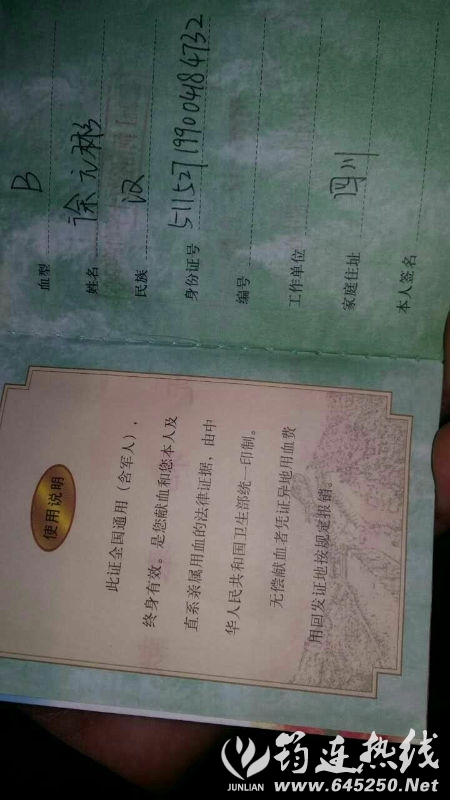 血型 B
姓名 徐元彬
民族 汉
身份证号 511527199004184732
编号
工作单位
家庭住址 四川
本人签名
使用说明
此证全国通用（含军人），
终身有效。是您献血和您本人及
直系亲属用血的法律证据，由中
华人民共和国卫生部统一印制。
无偿献血者凭证异地用血费
用回发证地按规定报销。
筠连热线
JUNLIAN
www.645250.Net